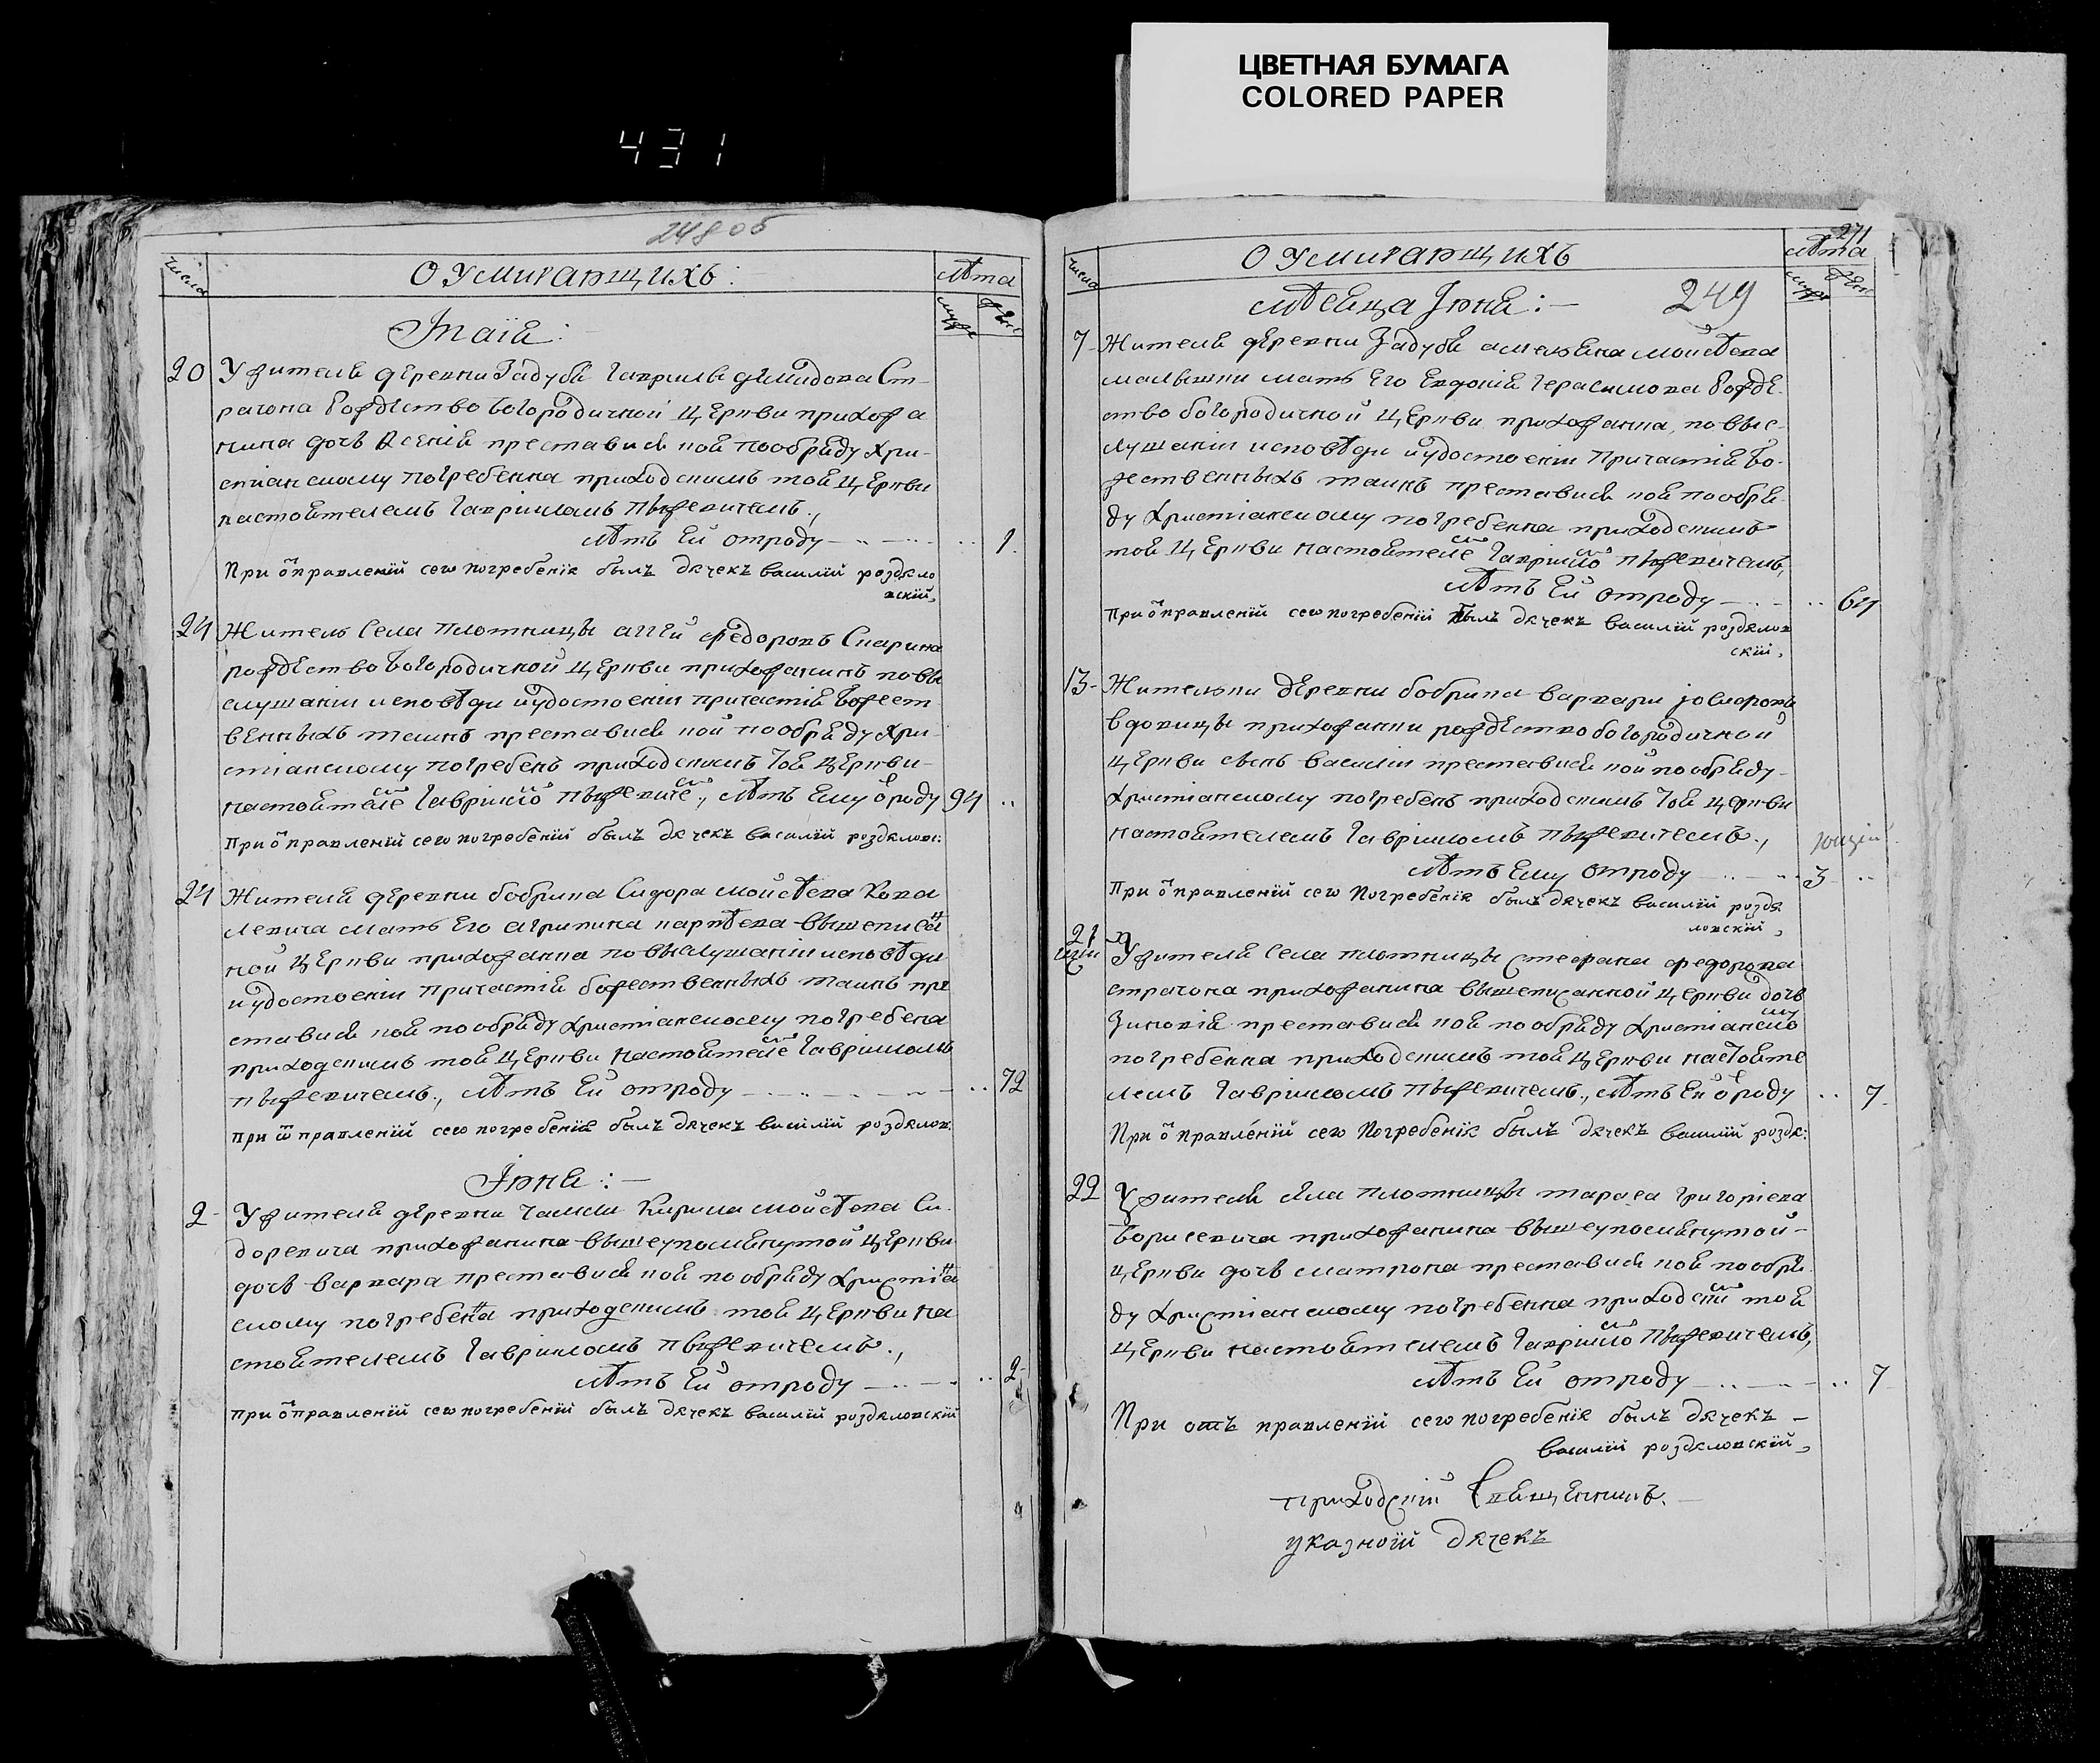 ЦВЕТНАЯ БУМАГА
COLORED PAPER
431
248 об
числа
О Умирающихъ:
лѣта
муже
женс
Маія:
20 У жителя деревни Задубя гаврила демидова Ст-
рачона рождество богородичной церкви прихожа
нина дочь Ксенія преставися коя пообряду хри-
стіанскому погребенна приходскимъ тоя церкви
настоятелемъ гавріиломъ пыжевичемъ.,
лѣтъ Ей отроду 1.
При ѿправленїй сегѡ погребенїя былъ дячекъ василїй роздяло
вскїй,
24 Житель села плотницы аггей федоровъ Скарина
рождество богородичной церкви прихожанинъ повы
слушаніи исповѣди и удостоеніи причастія божест
венныхъ таинъ преставися кой пообряду хри-
стіанскому погребенъ приходскимъ тоя церкви
настоятелемъ гавріиломъ пыжевичемъ., лѣтъ ему ѿроду 94 ..
При ѿправленїй сегѡ погребенїй былъ дячекъ василїй роздяловс:
24 Жителя деревни бобрика Сидора мойсѣева Кова
левича мать его агрипина карпѣева вышеписан
ной церкви прихожанка повыслушаніи исповѣди
и удостоеніи причастія божественныхъ таинъ пре
ставися коя пообряду христіанскому погребена
приходскимъ тоя церкви настоятелемъ гавріиломъ
пыжевичемъ., лѣтъ Ей отроду .. 72
при ѿправленїй сегѡ погребенїя былъ дячекъ василїй роздялов:
Іюня:
2 У жителя деревни Кирила мойсѣева Си-
доревича прихожанина вышеупомянутой церкви
дочь варвара преставися коя пообряду христіан
скому погребенна приходскимъ тоя церкви на
стоятелемъ гавріиломъ пыжевичемъ.,
лѣтъ Ей отроду .. 2
при ѿправленїй сегѡ погребенїй былъ дячекъ василїй роздяловскїй
271
числа
О Умирающихъ
лѣта
муже
женс
мѣсяца Іюня:
249
7 Жителя деревни Задубя амельяна мойсѣева
мать его Евдокія герасимова рожде-
ство богородичной церкви прихожанка, повыс-
лушаніи исповѣди и удостоеніи причастія бо-
жественныхъ таинъ преставися коя пообря-
ду христіанскому погребенна приходскимъ
тоя церкви настоятелемъ гавріиломъ пыжевичемъ,
лѣтъ Ей отроду .. 64
при ѿправленїй сегѡ погребенїй былъ дячекъ василїй роздялов
скїй,
13 Жительки деревни бобрика варвари іосифовы
вдовицы прихожанки рождество богородичной
церкви сынъ василій преставися кой пообряду
христіанскому погребенъ приходскимъ тоя церкви
настоятелемъ гавріиломъ пыжевичемъ.,
лѣтъ Ему отроду 3 ..
При ѿправленїй сегѡ погребенїя былъ дячекъ василїй роздя
ловскїй,
21 У жителя села плотницы стефана федорова
страчона прихожанина вышеписанной церкви дочь
Зиновія преставися коя пообряду христіанскому
погребенна приходскимъ тоя церкви настояте
лемъ гавріиломъ пыжевичемъ., лѣтъ Ей ѿроду .. 7
При ѿправленїй сегѡ погребенїя былъ дячекъ василїй роздя:
22 У жителя села плотницы тараса григоріева
борисевича прихожанина вышеупомянутой
церкви дочь матрона преставися коя пообря-
ду христіанскому погребенна приходскимъ тоя
церкви настоятелемъ гавріиломъ пыжевичемъ,
лѣтъ Ей отроду .. 7
При отъ правленїй сегѡ погребенїя былъ дячекъ
василїй роздяловскїй,
приходскій Священникъ.
указной дячекъ